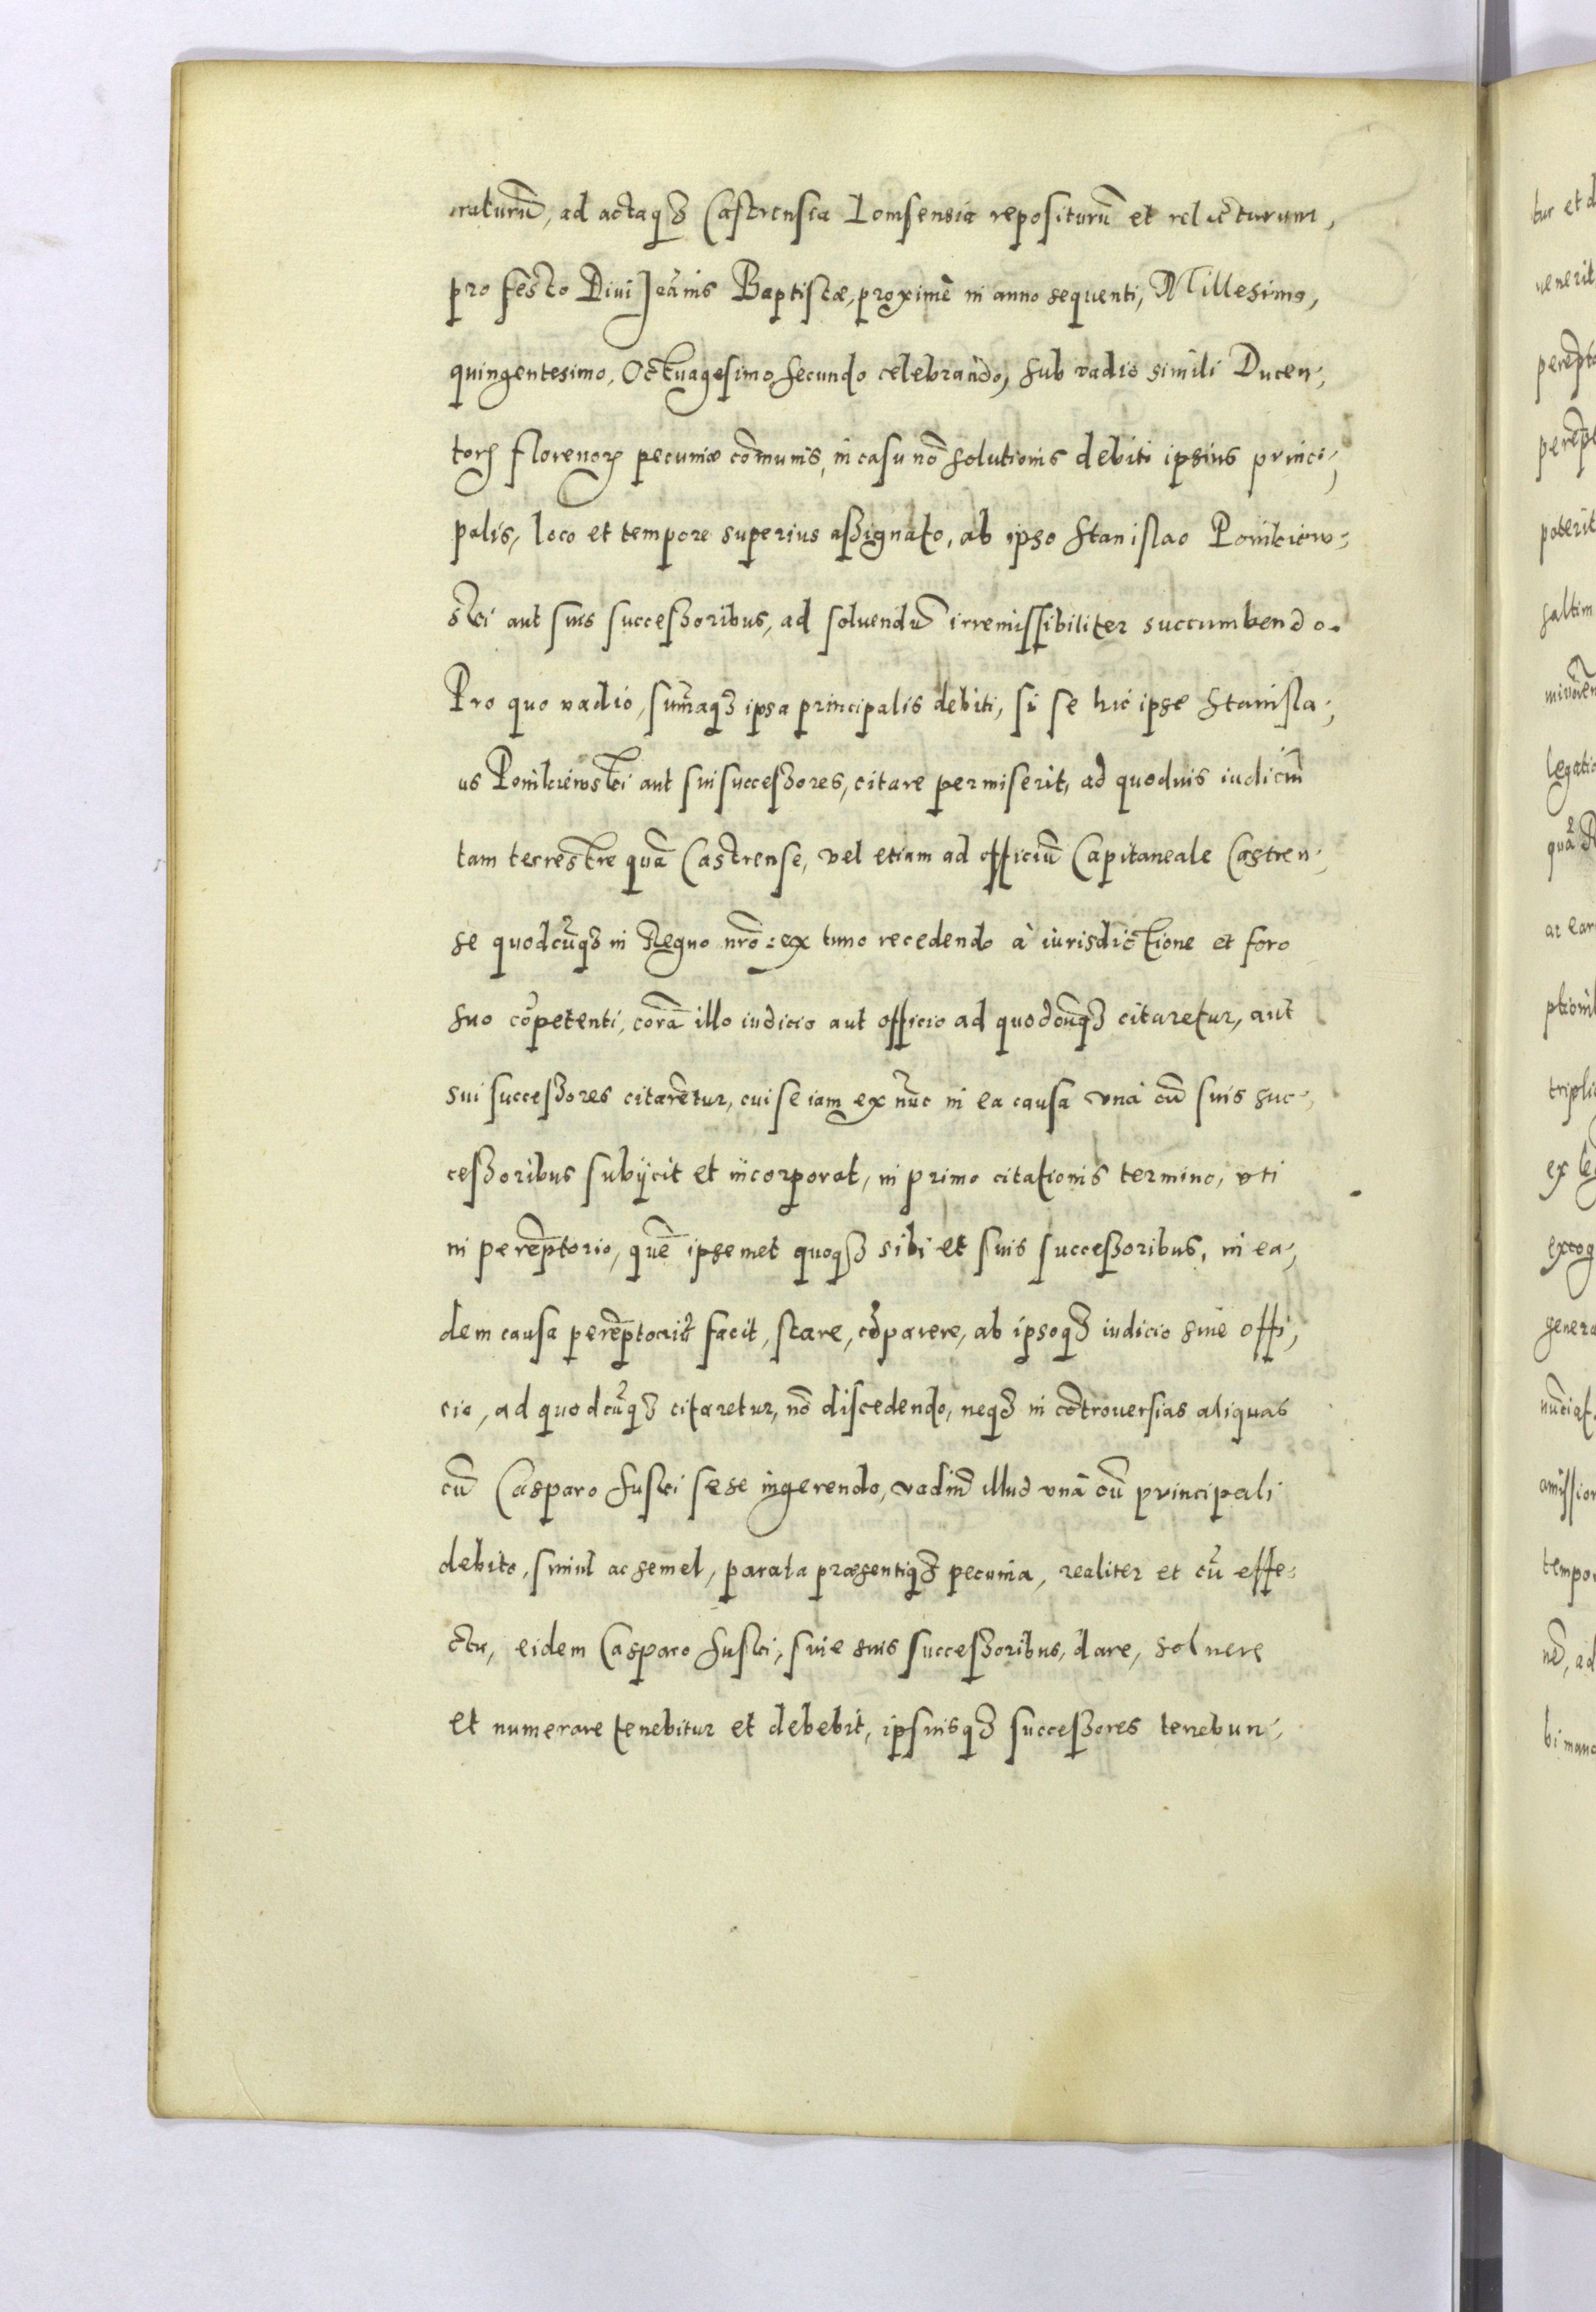 raturũ, ad actaqꝫ Castrensia Lomsensia repositurũ et relicturum,
pro festo Diui Joãnis Baptistæ, proximè in anno sequenti, Millesimo,
quingentesimo, Octuagesimo secundo celebrando, sub vadio simili Ducen-
torꝝ florenorꝝ pecuniæ cõmunis, in casu nõ solutionis debiti ipsius princi-
palis, loco et tempore superius aßignato, ab ipso Stanislao Ponikiew-
ski aut suis succeßoribus, ad soluendũ irremissibiliter succumbendo.
Pro quo vadio, sum̃aqꝫ ipsa principalis debiti, si se hic ipse Stanisla-
us Ponikiewski aut sui succeßores, citare permiserit, ad quoduis iudiciũ
tam terrestre quã Castrense, vel etiam ad officiũ Capitaneale Castren-
se quodcũqꝫ in Regno nrõ: ex tunc recedendo à iurisdictione et foro
suo cõpetenti, corã illo iudicio aut officio ad quodcũqꝫ citaretur, aut
sui succeßores citarẽtur, cui se iam ex nũc in ea causa vnà cũ suis suc-
ceßoribus subijcit et incorporat, in primo citationis termino, vti
in perẽptorio, quẽ ipsemet quoqꝫ sibi et suis succeßoribus, in ea-
dem causa perẽptoriũ facit, stare, cõparere, ab ipsoqꝫ iudicio siue offi-
cio, ad quodcũqꝫ citaretur, nõ discedendo, neqꝫ in cõtrouersias aliquas
cũ Casparo Suski sese ingerendo, vadiũ illud vnà cũ principali
debito, simul ac semel, parata præsentiqꝫ pecunia, realiter et cũ effe-
ctu, eidem Casparo Suski, siue suis succeßoribus, dare, soluere
et numerare tenebitur et debebit, ipsiusqꝫ succeßores tenebun-